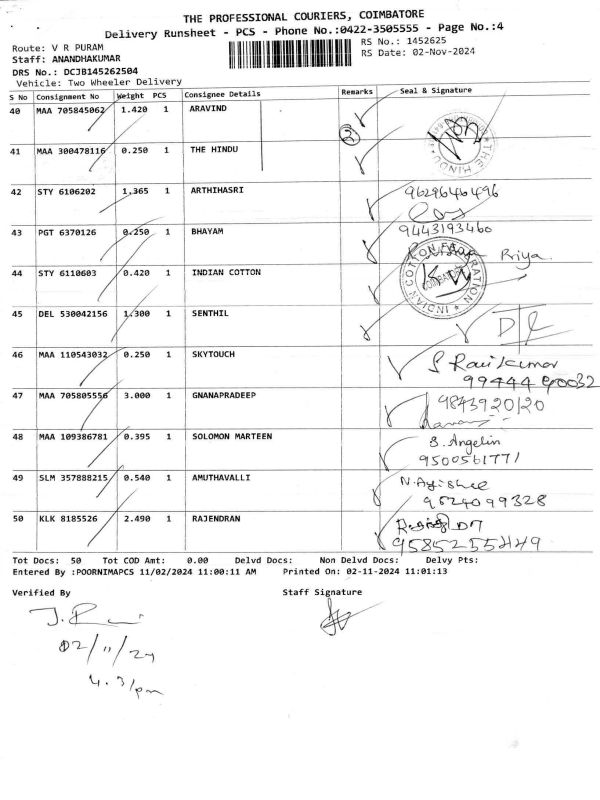 THE PROFESSIONAL COURIERS, COIMBATORE
Delivery Runsheet - PCS - Phone No.:0422-3505555 - Page No.:4
Route: V R PURAM
RS No.: 1452625
Staff: ANANDHAKUMAR
RS Date: 02-Nov-2024
DRS No.: DCJB145262504
Vehicle: Two Wheeler Delivery
S No Consignment No Weight PCS Consignee Details Remarks Seal & Signature
40 MAA 705845062 1.420 1 ARAVIND
41 MAA 300478116 0.250 1 THE HINDU THE HINDU
42 STY 6106202 1.365 1 ARTHIHASRI 9629646496
43 PGT 6370126 0.250 1 BHAYAM 9443193460
Priya
44 STY 6110603 0.420 1 INDIAN COTTON INDIAN COTTON FEDERATION
45 DEL 530042156 1.300 1 SENTHIL
46 MAA 110543032 0.250 1 SKYTOUCH S Ravikumar
99444 90032
47 MAA 705805556 3.000 1 GNANAPRADEEP 9843920120
48 MAA 109386781 0.395 1 SOLOMON MARTEEN S. Angelin
9500561771
49 SLM 357888215 0.540 1 AMUTHAVALLI
9524099328
50 KLK 8185526 2.490 1 RAJENDRAN
9585255449
Tot Docs: 50 Tot COD Amt: 0.00 Delvd Docs: Non Delvd Docs: Delvy Pts:
Entered By :POORNIMAPCS 11/02/2024 11:00:11 AM Printed On: 02-11-2024 11:01:13
Verified By Staff Signature
02/11/24
4.31pm